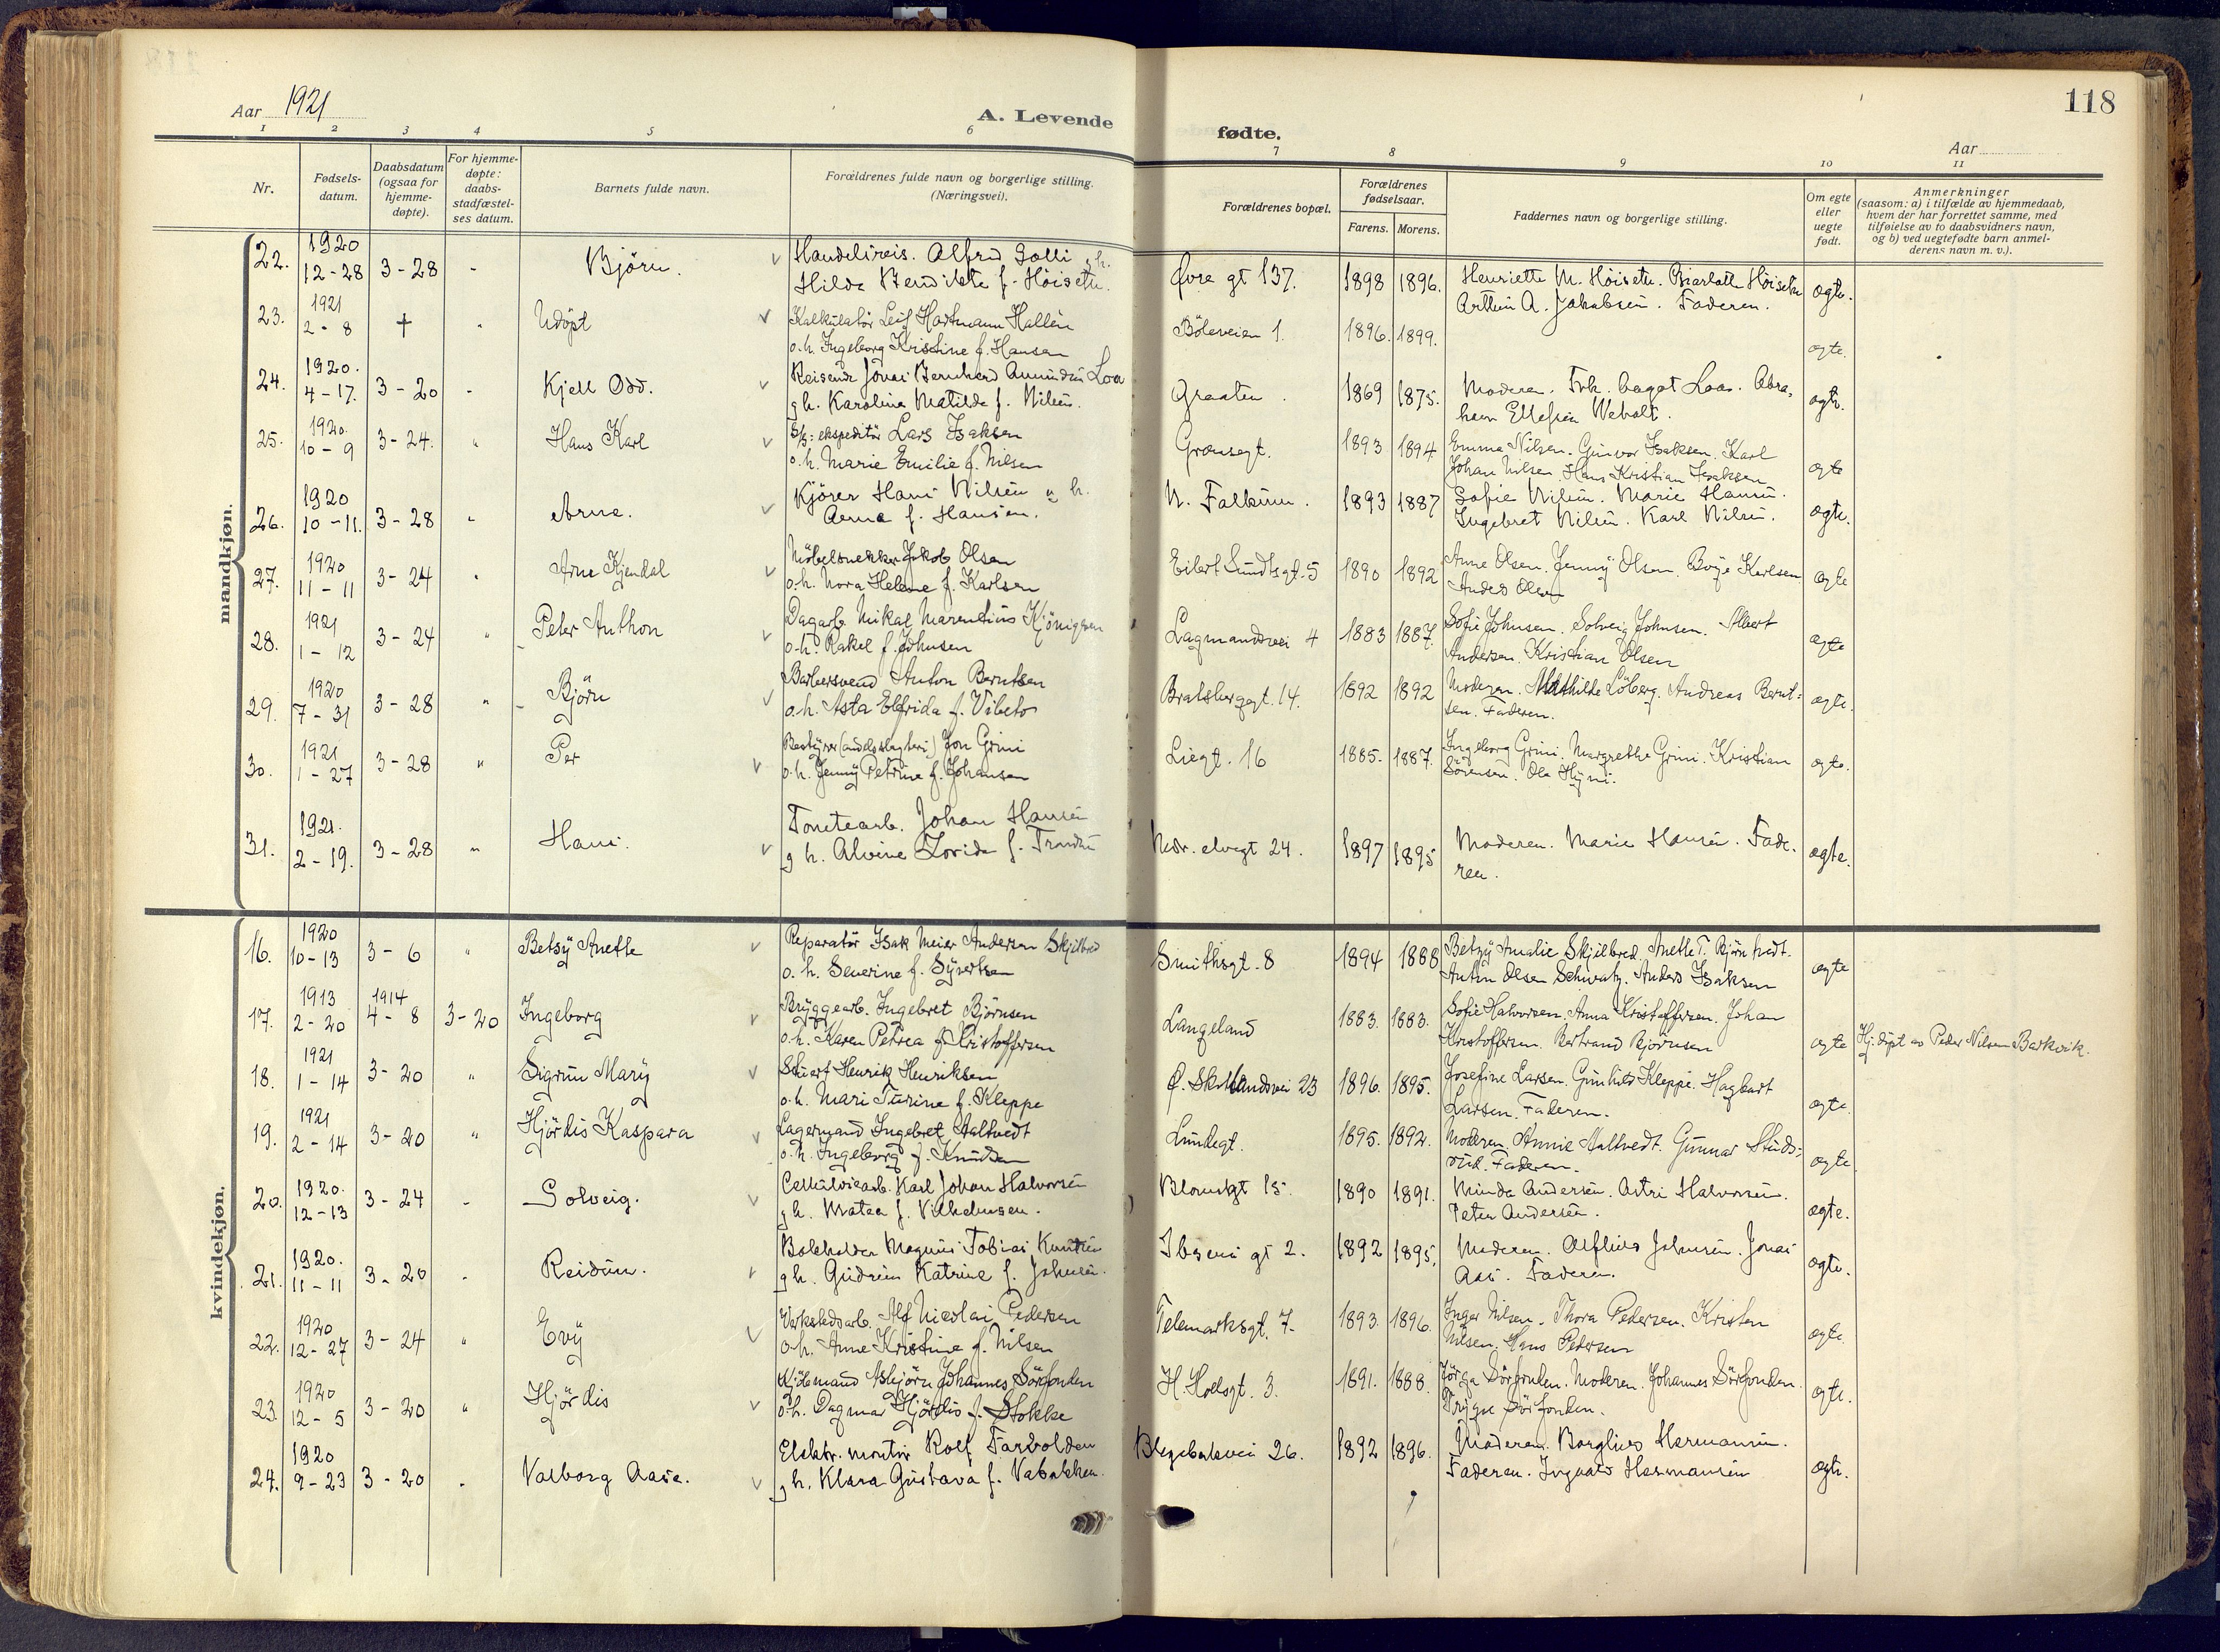 118
Aar 1921
A. Levende
fødte.
Aar
1 2 3 4 5 6 7 8 9 10 11
Nr.
Fødsels-
datum.
Daabsdatum
(ogsaa for
hjemme-
døpte).
For hjemme-
døpte:
daabs-
stadfæstel-
ses datum.
Barnets fulde navn.
Forældrenes fulde navn og borgerlige stilling.
(Næringsvei).
Forældrenes bopæl.
Forældrenes
fødselsaar.
Farens. Morens.
Faddernes navn og borgerlige stilling.
Om egte
eller
uegte
født.
Anmerkninger
(saasom: a) i tilfælde av hjemmedaab,
hvem der har forrettet samme, med
tilføielse av to daabsvidners navn,
og b) ved uegtefødte barn anmel-
derens navn m. v.).
mandkjøn.
22. 1920 12-28 3-28 - Björn.
Handelsreis. Alfred Solli g. h.
Hilda Bendikte f. Höiseth.
Øvre gt 137. 1898 1896.
Henriette M. Höiseth. Höiseth
Arthur A. Jakobsen. Faderen. ægte.
23. 1921 2-8 † " Udöpt
Kalkulatör Leif Hartmann Hallén
o. h. Ingeborg Kristine f. Hansen
Böleveien 1. 1896. 1899. ægte.
24. 1920. 4-17. 3-20 - Kjell Odd.
Reisende Jonas Bernhard Amundsen Loa
g h. Karoline Matilde f. Nilsen.
Graaten. 1869 1875.
Moderen. Frk. Dagot Loa. Abra-
ham Ellefsen ægte.
25. 1920. 10-9 3-24. " Hans Karl
ekspeditör Lars Isaksen
o. h. Marie Emilie f. Nilsen
Grænsegt. 1893 1894
Emma Nilsen. Gunvor Isaksen. Karl
Johan Nilsen. Hans Kristian Isaksen ægte
26. 1920 10-11. 3-28 " Arne.
Kjörer Hans Nilsen g. h.
Anna f. Hansen.
N. Falkum. 1893 1887
Sofie Nilsen. Marie Hansen.
Ingebret Nilsen. Karl Nilsen. ægte.
27. 1920 11-11 3-24 " Arne Kjendal
Möbelsnekker Jakob Olsen
o. h. Nora Helene f. Karlsen
Eilert Sundtsgt. 5 1890 1892
Anne Olsen. Jenny Olsen. Karlsen
Anders Olsen ægte
28. 1921 1-12 3-24 " Peter Anthon
Dagarb. Mikal Marentius Kjönigsen
o. h. Rakel f. Johnsen
Lagmandsvei 4 1883 1887.
Sofie Johnsen. Solveig Johnsen. Albert
Andersen. Kristian Olsen ægte
29. 1920 7-31 3-28 " Björn
Barbersvend Anton Berntsen
o. h. Asta Elfrida f. Vibeto
Bratsberggt. 14. 1892 1892
Moderen. Mathilde Löberg. Andreas Bernt=
sen. Faderen. ægte.
30. 1921 1-27 3-28 " Per
Bestyrer (andelsslagteri) Jon Grini
o. h. Jenny Petrine f. Johansen
Liegt. 16 1885. 1887.
Ingeborg Grini. Margrethe Grini. Kristian
Sörensen. Ola Hyni. ægte.
31. 1921. 2-19. 3-28 " Hans.
Tomtearb. Johan Hansen
g h. Alvine Lovida f.
Nedr. elvegt 24. 1897 1895
Moderen. Marie Hansen. Fade-
ren. ægte.
kvindekjøn.
16. 1920 10-13 3-6 " Betsy Anette
Reparatör Isak Meier Andersen Skjilbred
o. h. Severine f. Syvertsen
Smithsgt. 8 1894 1888
Betzy Amalie Skjilbred. Anethe T. Björntvedt.
Anton Olsen Schwatz. Anders Isaksen ægte
17. 1913 2-20 1914 4-8 3-20 Ingeborg
Bryggearb. Ingebret Björnsen
o. h. Karen Petrea f. Kristoffersen
Langeland 1883. 1883.
Sofie Halvorsen. Anna Kristoffersen. Johan
Kristoffersen. Bertrand Björnsen ægte Hj. döpt av Peder Nilsen Barkvik.
18. 1921 1-14 3-20 " Sigrun Mary
Stuert Henrik Henriksen
o. h. Mari Turine f. Kleppe
Ø. Skotlandsvei 23 1896. 1895.
Josefine Larsen. Gunhild Kleppe. Hagbart
Larsen. Faderen. ægte.
19. 1921 2-14 3-20 " Hjördis Kaspara
Lagermand Ingebret Aaltvedt
o. h. Ingeborg f. Knudsen
Lundegt. 1895. 1892.
Moderen. Annie Aaltvedt. Gunnar Studs=
rud. Faderen. ægte
20. 1920. 12-13 3-24 - Solveig.
Cellulosearb. Karl Johan Halvorsen
g h. Matea f. Vilhelmsen.
Blomstgt 15. 1890 1891.
Minda Andersen. Astri Halvorsen.
Peter Andersen. ægte.
21. 1920. 11-11 3-20 - Reidun.
Magnus Tobias Knutsen
g h. Gudrun Katrine f. Johnsen.
Ibsens gt 2. 1892 1895.
Moderen. Alfhild Johnsen. Jonas
Aas. Faderen. ægte.
22. 1920 12-27 3-24 " Evy
Verkstedsarb. Alf Nicolai Pedersen
o. h. Anne Kristine f. Nilsen
Telemarksgt. 7. 1893. 1896.
Inger Nilsen. Thora Pedersen. Kristen
Nilsen. Hans Pedersen ægte.
23. 1920 12-5 3-20 " Hjördis
Asbjörn Johannes Sörfonden
o. h. Dagmar Hjördis f. Stokke
H. Holtsgt. 3. 1891. 1888.
Sörfonden. Moderen. Johannes Sörfonden.
Trygve Sörfonden. ægte.
24. 1920 9-23 3-20 - Valborg Aase.
Elektr. montör Rolf Farvolden
g h. Klara Gustava f. Vabakken.
Blegebakvei 26. 1892 1896.
Moderen. Borghild Hermansen.
Faderen. Ingvald Hermansen ægte.